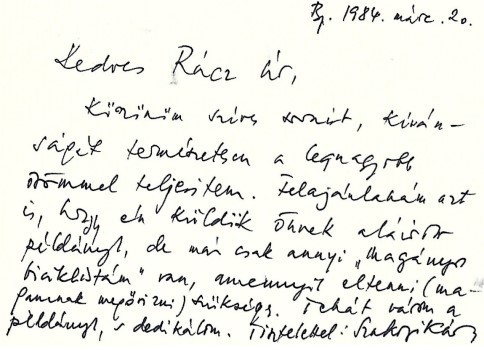 Bp. 1984. márc. 20.
Kedves Rácz Úr,
Köszönöm szíves sorait, kíván-
ságát természetesen a legnagyobb
örömmel teljesítem. Felajánlanám azt
is, hogy én küldök Önnek aláírott
példányt, de már csak annyi „magányos
biciklistám” van, amennyit eltenni (ma-
gamnak megőrizni) szükséges. Tehát várom a
példányt, s dedikálom. Tisztelettel: